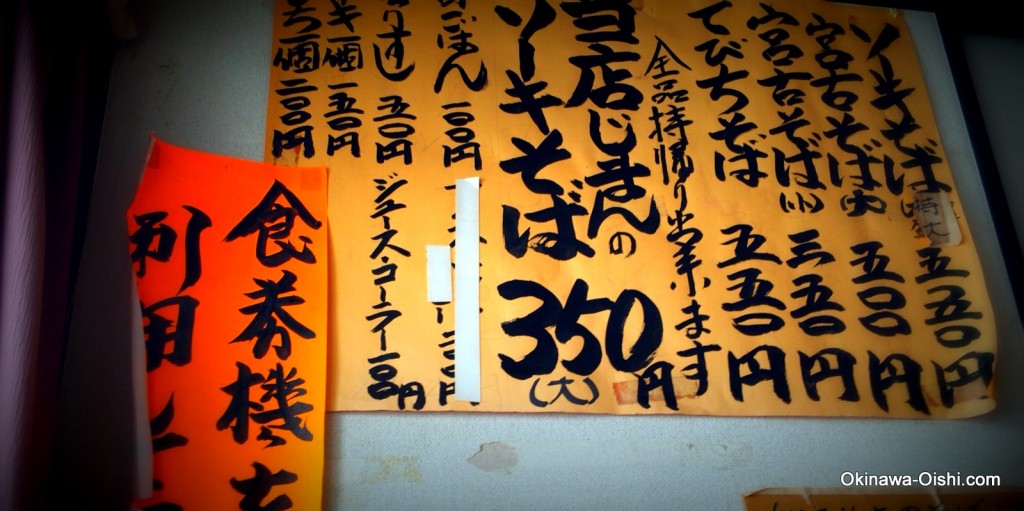 ソーキそば 特大 五五〇円
宮古そば(大) 五〇〇円
宮古そば(小) 三五〇円
てびちそば 五五〇円
全品持帰り出来ます
当店じまんの
ソーキそば 350円
(大)
ごはん 一〇〇円
二〇〇円
五〇円
ジュース・コーラ 一〇〇円
キ一個 一五〇円
ち一個 二〇〇円
食券機を
利用
Okinawa-Oishi.com